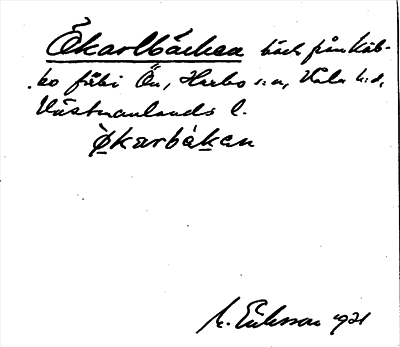 Ökarlbäcken bäck från Käb-
bo förbi Ön, Harbo s:n, Våla h:d,
Västmanlands l.
Ökarbäkan
M. Eriksson 1921